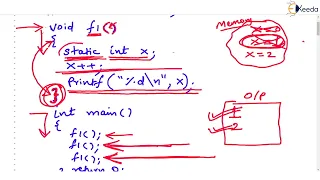 Ekeeda
void f1()
{
static int x;
x++;
printf("%d\n", x);
}
int main()
{
f1();
f1();
f1();
return 0;
Memory
x=0
x=1
x=2
O/P
1
2